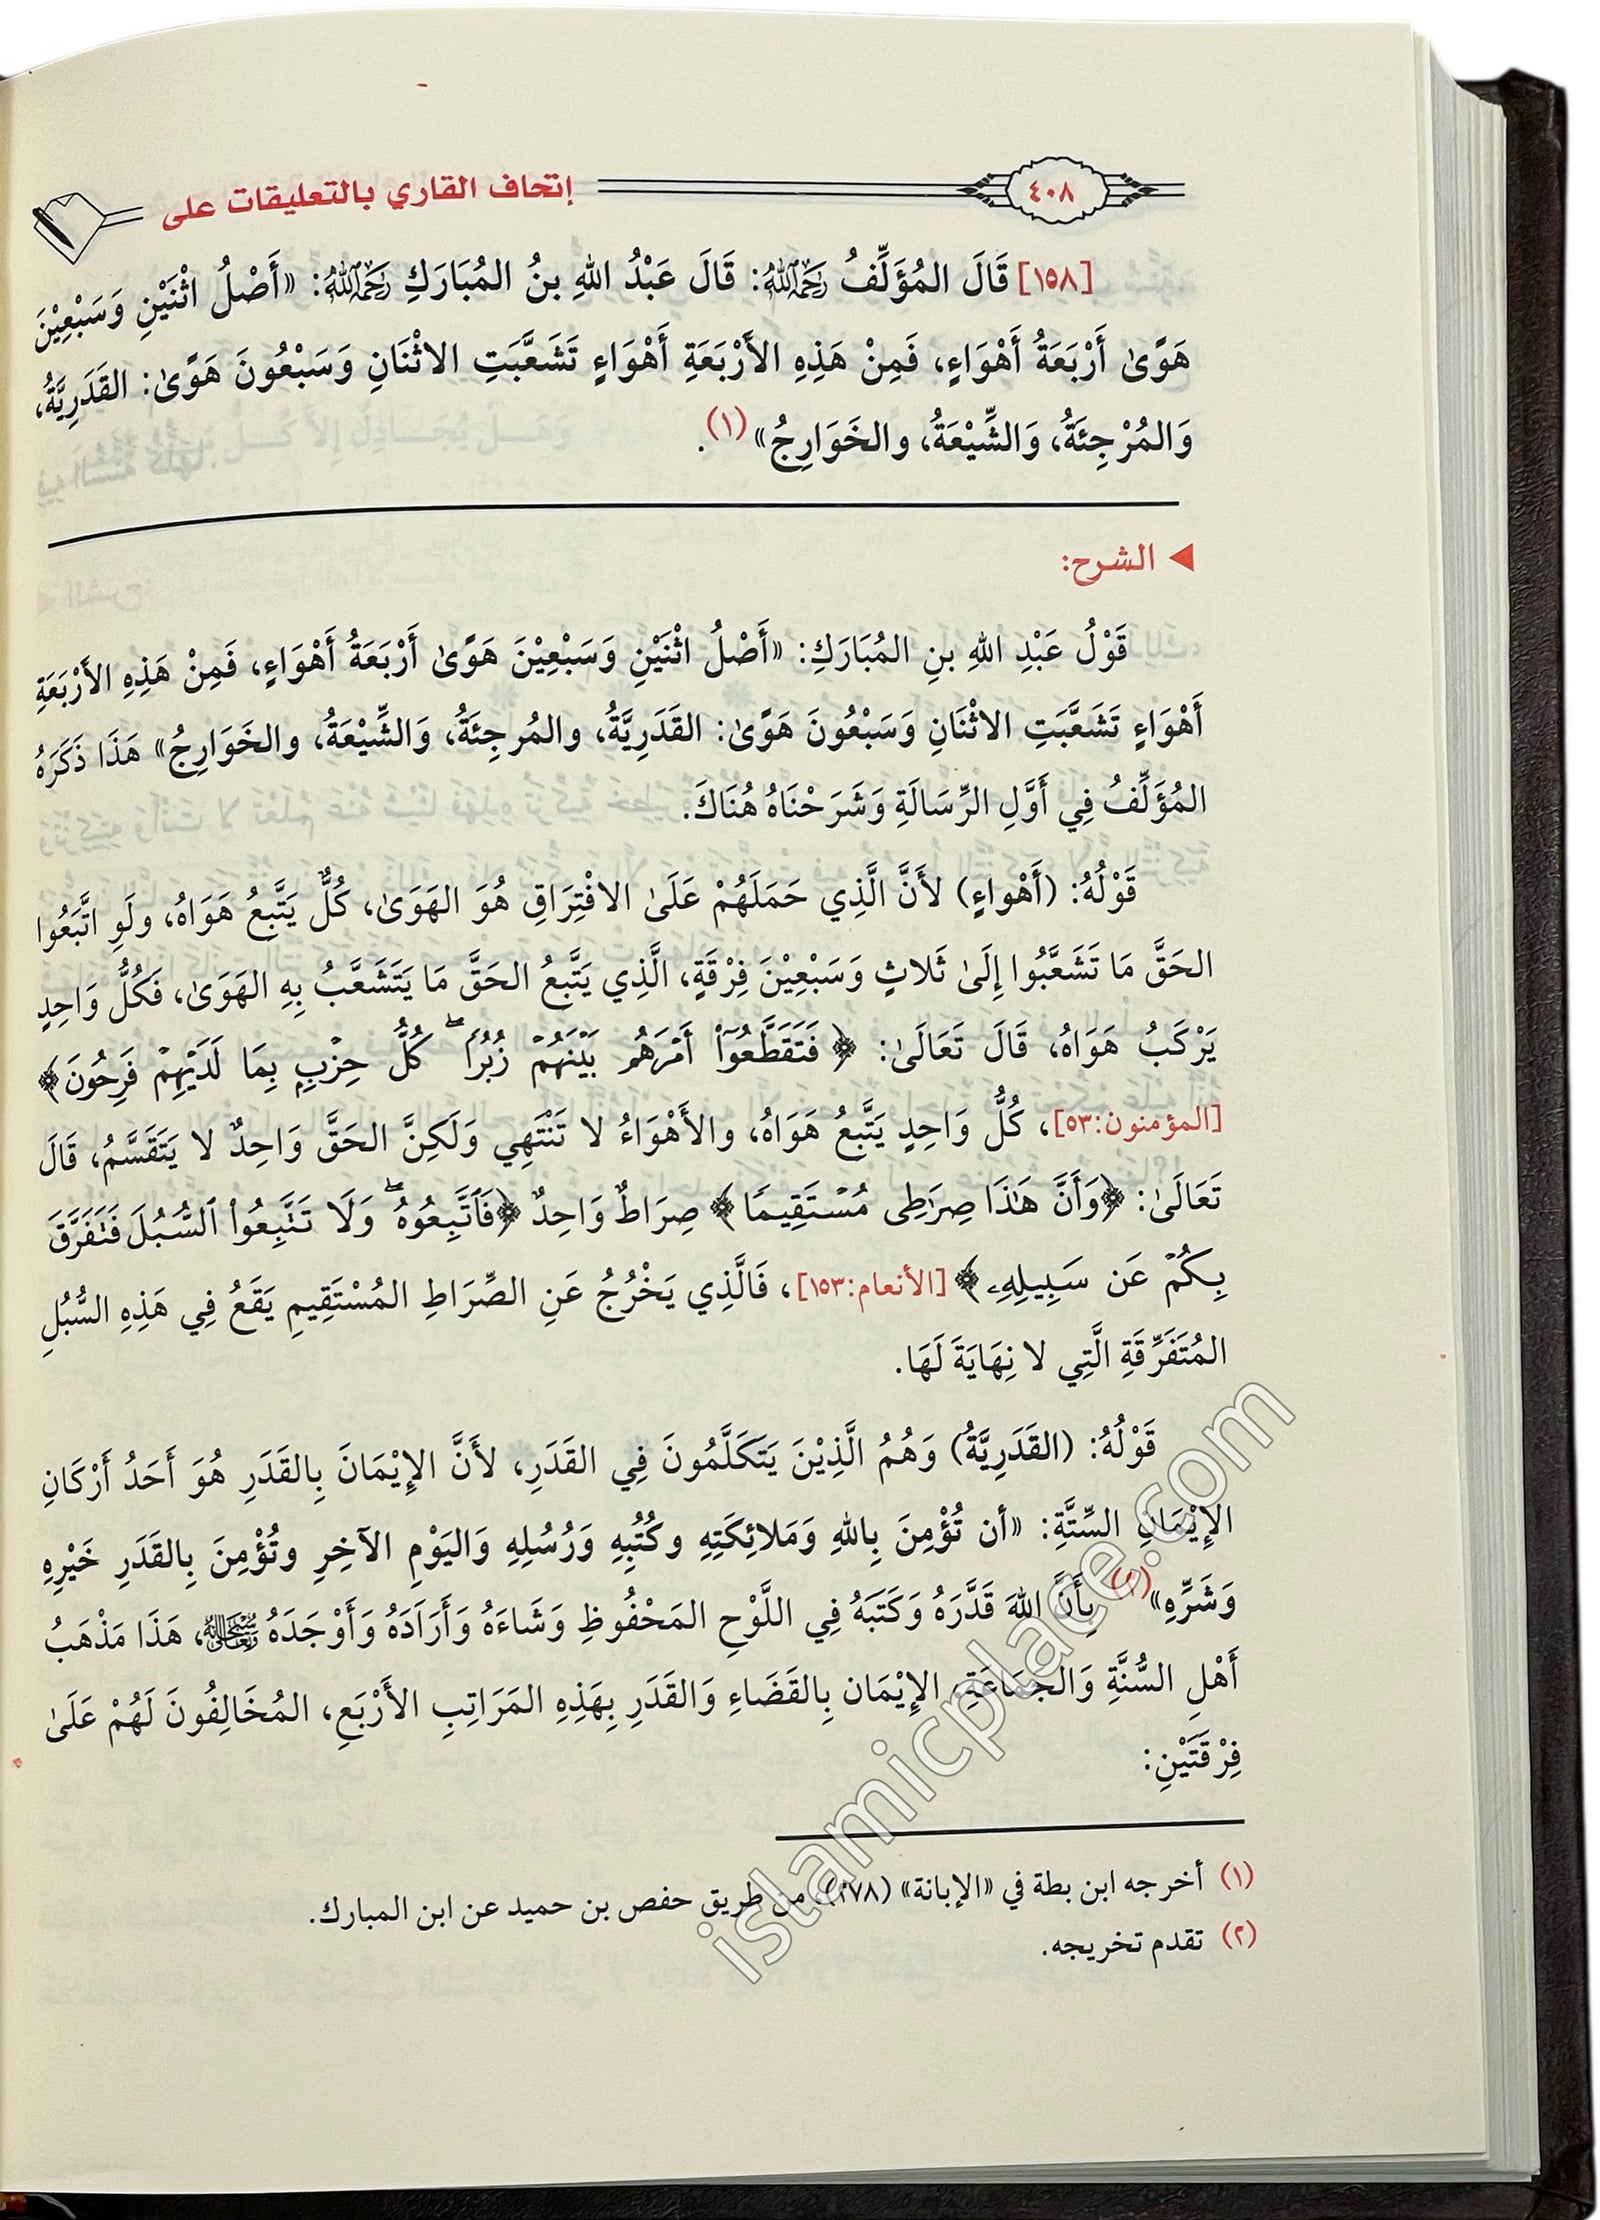 ٤٠٨
إتحاف القاري بالتعليقات على
[١٥٨] قَالَ المُؤَلِّفُ رَحِمَهُ اللهُ: قَالَ عَبْدُ اللهِ بنُ المُبَارَكِ رَحِمَهُ اللهُ: «أَصْلُ اثْنَيْنِ وَسَبْعِيْنَ
هَوًى أَرْبَعَةُ أَهْوَاءٍ، فَمِنْ هَذِهِ الأَرْبَعَةِ أَهْوَاءٍ تَشَعَّبَتِ الاثْنَانِ وَسَبْعُونَ هَوًى: القَدَرِيَّةُ،
وَالمُرْجِئَةُ، وَالشِّيْعَةُ، والخَوَارِجُ»(١).
◄ الشرح:
قَوْلُ عَبْدِ اللهِ بنِ المُبَارَكِ: «أَصْلُ اثْنَيْنِ وَسَبْعِيْنَ هَوًى أَرْبَعَةُ أَهْوَاءٍ، فَمِنْ هَذِهِ الأَرْبَعَةِ
أَهْوَاءٍ تَشَعَّبَتِ الاثْنَانِ وَسَبْعُونَ هَوًى: القَدَرِيَّةُ، والمُرجِئَةُ، وَالشِّيْعَةُ، والخَوَارِجُ» هَذَا ذَكَرَهُ
المُؤَلِّفُ فِي أَوَّلِ الرِّسَالَةِ وَشَرَحْنَاهُ هُنَاكَ.
قَوْلُهُ: (أَهْواءٍ) لأَنَّ الَّذِي حَمَلَهُمْ عَلَى الافْتِرَاقِ هُوَ الهَوَى، كُلٌّ يَتَّبِعُ هَوَاهُ، ولَوِ اتَّبَعُوا
الحَقَّ مَا تَشَعَّبُوا إِلَى ثَلاثٍ وَسَبْعِيْنَ فِرْقَةٍ، الَّذِي يَتَّبِعُ الحَقَّ مَا يَتَشَعَّبُ بِهِ الهَوَى، فَكُلُّ وَاحِدٍ
يَرْكَبُ هَوَاهُ، قَالَ تَعَالَى: ﴿فَتَقَطَّعُوٓا۟ أَمْرَهُم بَيْنَهُمْ زُبُرًا ۖ كُلُّ حِزْبٍۭ بِمَا لَدَيْهِمْ فَرِحُونَ﴾
[المؤمنون:٥٣]، كُلُّ وَاحِدٍ يَتَّبِعُ هَوَاهُ، والأَهْوَاءُ لا تَنْتَهِي وَلَكِنَّ الحَقَّ وَاحِدٌ لا يَتَقَسَّمُ، قَالَ
تَعَالَى: ﴿وَأَنَّ هَٰذَا صِرَٰطِى مُسْتَقِيمًا﴾ صِرَاطٌ وَاحِدٌ ﴿فَٱتَّبِعُوهُ ۖ وَلَا تَتَّبِعُوا۟ ٱلسُّبُلَ فَتَفَرَّقَ
بِكُمْ عَن سَبِيلِهِۦ﴾ [الأنعام:١٥٣]، فَالَّذِي يَخْرُجُ عَنِ الصِّرَاطِ المُسْتَقِيمِ يَقَعُ فِي هَذِهِ السُّبُلِ
المُتَفَرِّقَةِ الَّتِي لا نِهَايَةَ لَهَا.
قَوْلُهُ: (القَدَرِيَّةُ) وَهُمُ الَّذِيْنَ يَتَكَلَّمُونَ فِي القَدَرِ، لأَنَّ الإِيْمَانَ بِالقَدَرِ هُوَ أَحَدُ أَرْكَانِ
الإِيْمَانِ السِّتَّةِ: «أن تُؤْمِنَ بِاللهِ وَمَلائِكَتِهِ وكُتُبِهِ وَرُسُلِهِ وَاليَوْمِ الآخِرِ وتُؤْمِنَ بِالقَدَرِ خَيْرِهِ
وَشَرِّهِ»(٢) بِأَنَّ اللهَ قَدَّرَهُ وَكَتَبَهُ فِي اللَّوْحِ المَحْفُوظِ وَشَاءَهُ وَأَرَادَهُ وَأَوْجَدَهُ سُبْحَانَهُ وَتَعَالَى، هَذَا مَذْهَبُ
أَهْلِ السُّنَّةِ وَالجَمَاعَةِ، الإِيْمَان بِالقَضَاءِ وَالقَدَرِ بِهَذِهِ المَرَاتِبِ الأَرْبَعِ، المُخَالِفُونَ لَهُمْ عَلَى
فِرْقَتَيْنِ:
(١) أخرجه ابن بطة في «الإبانة» (٢٧٨)، من طريق حفص بن حميد عن ابن المبارك.
(٢) تقدم تخريجه.
islamicplace.com